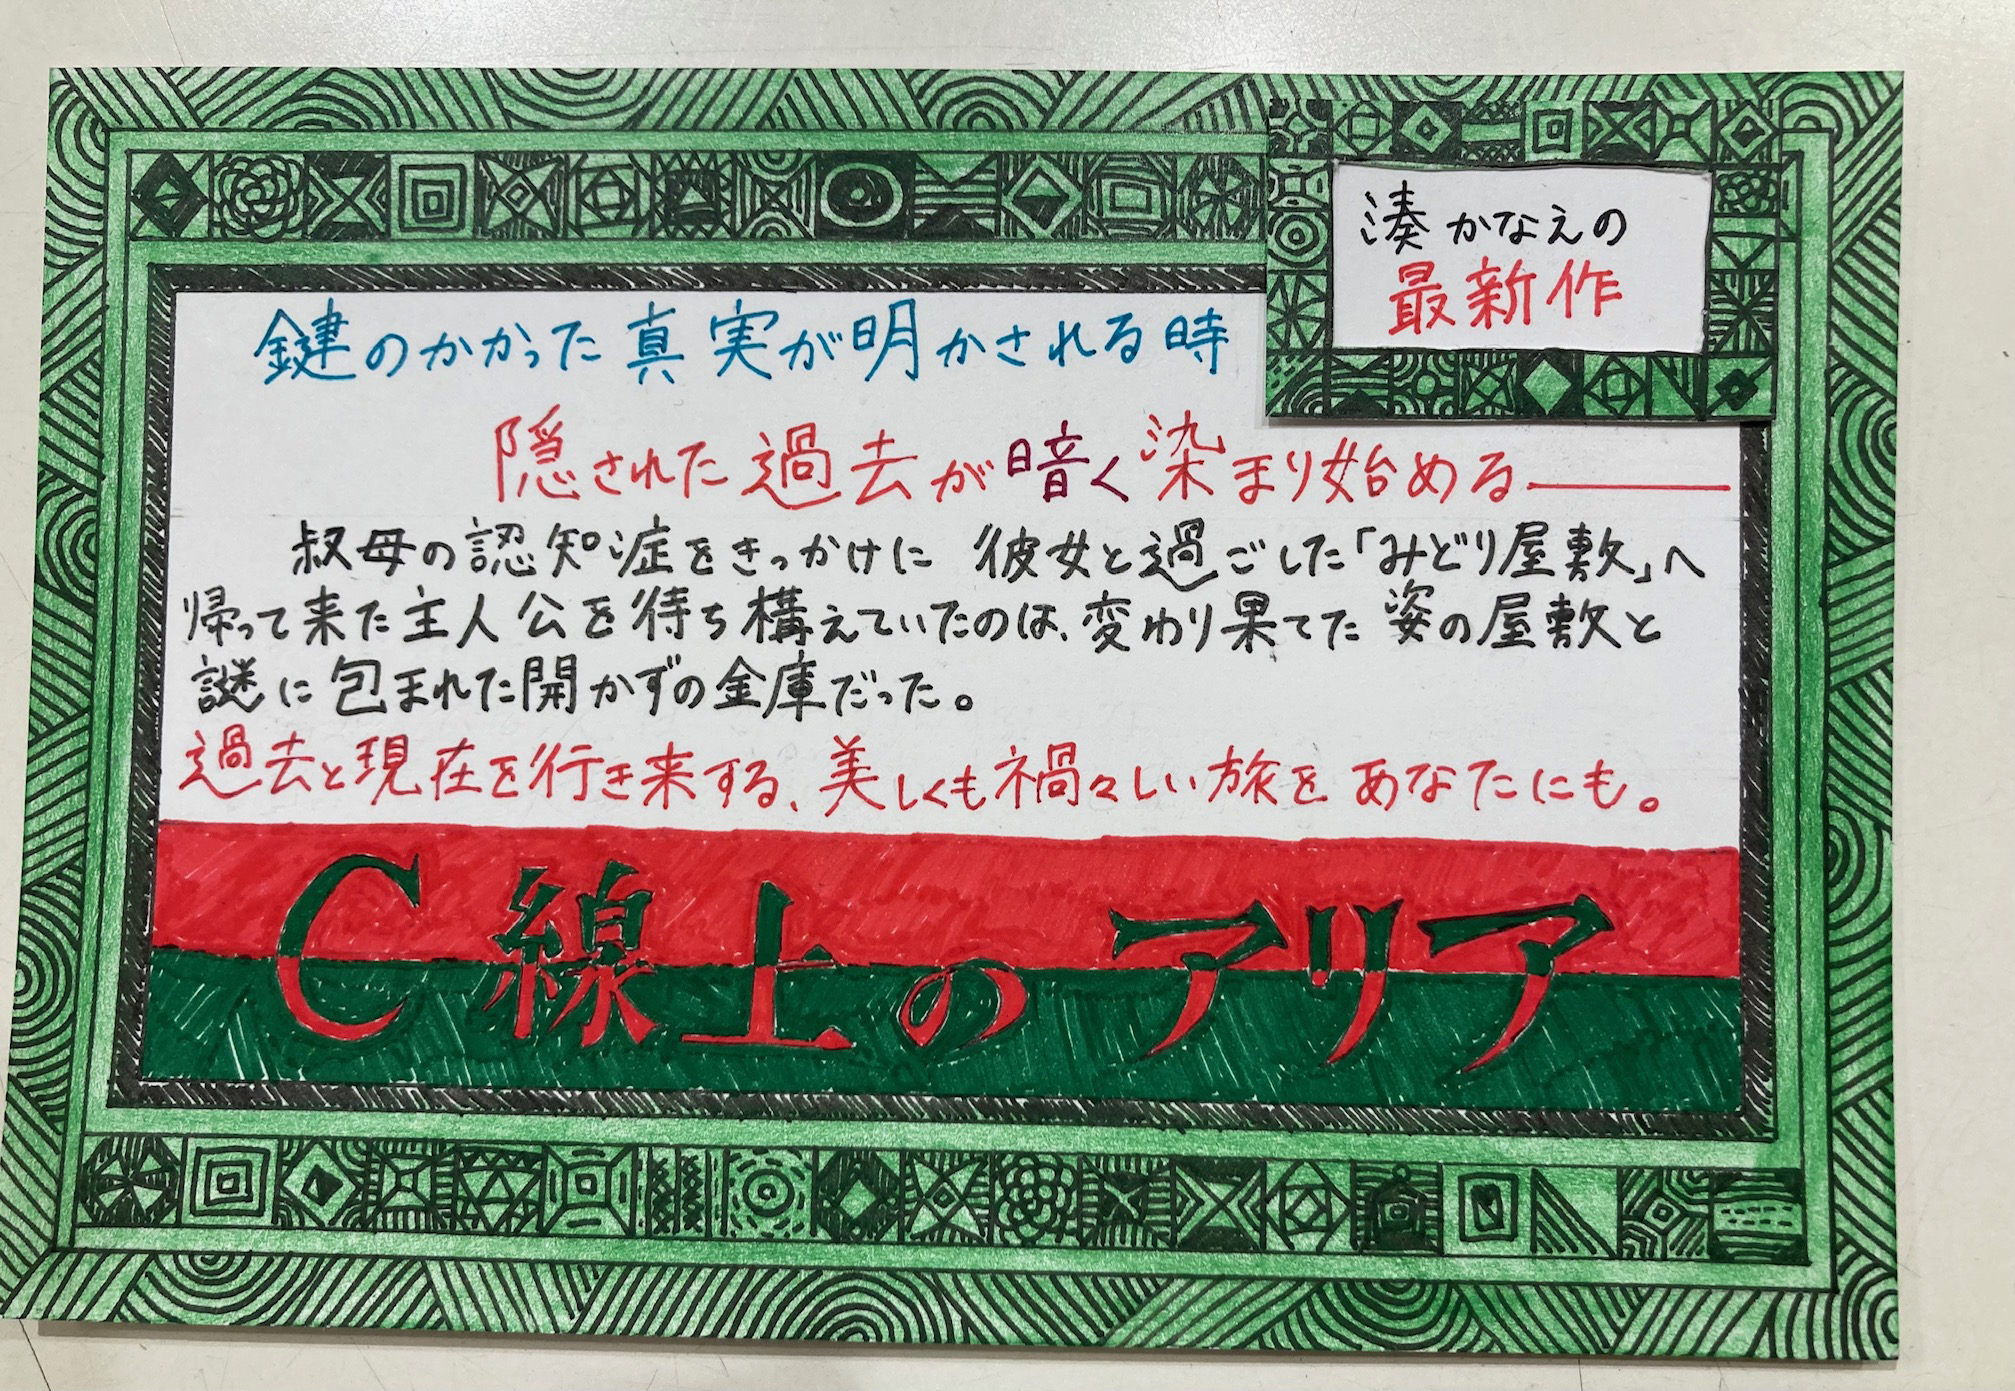 湊かなえの
最新作
鍵のかかった真実が明かされる時
隠された過去が暗く染まり始める――
叔母の認知症をきっかけに 彼女と過ごした「みどり屋敷」へ
帰って来た主人公を待ち構えていたのは、変わり果てた姿の屋敷と
謎に包まれた開かずの金庫だった。
過去と現在を行き来する、美しくも禍々しい旅をあなたにも。
C線上のアリア